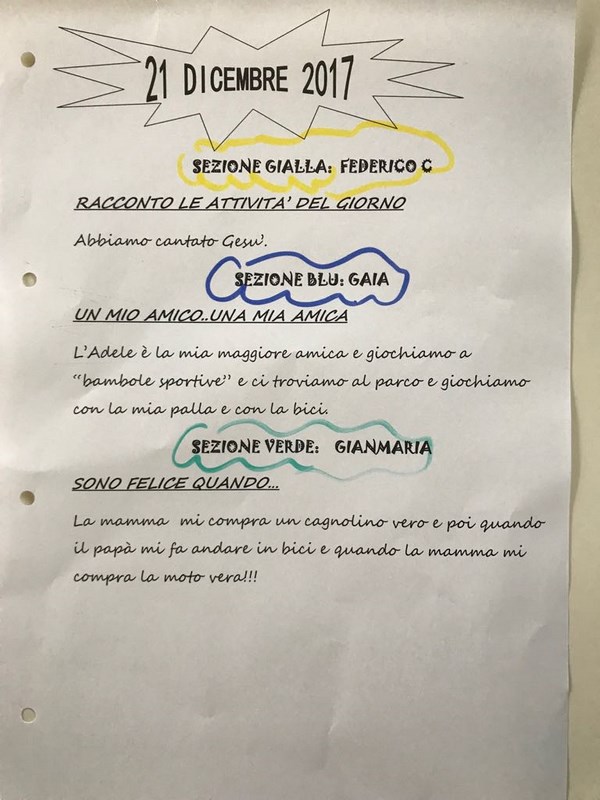 21 DICEMBRE 2017
SEZIONE GIALLA: FEDERICO C
RACCONTO LE ATTIVITA' DEL GIORNO
Abbiamo cantato Gesu'.
SEZIONE BLU: GAIA
UN MIO AMICO..UNA MIA AMICA
L'Adele è la mia maggiore amica e giochiamo a
“bambole sportive” e ci troviamo al parco e giochiamo
con la mia palla e con la bici.
SEZIONE VERDE: GIANMARIA
SONO FELICE QUANDO...
La mamma mi compra un cagnolino vero e poi quando
il papà mi fa andare in bici e quando la mamma mi
compra la moto vera!!!